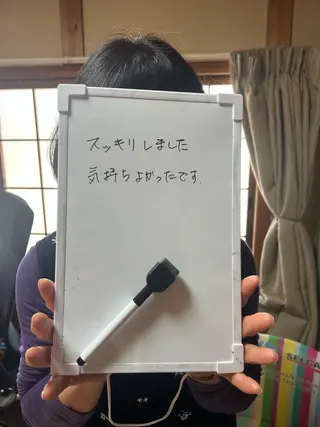 スッキリしました
気持ちよかったです.